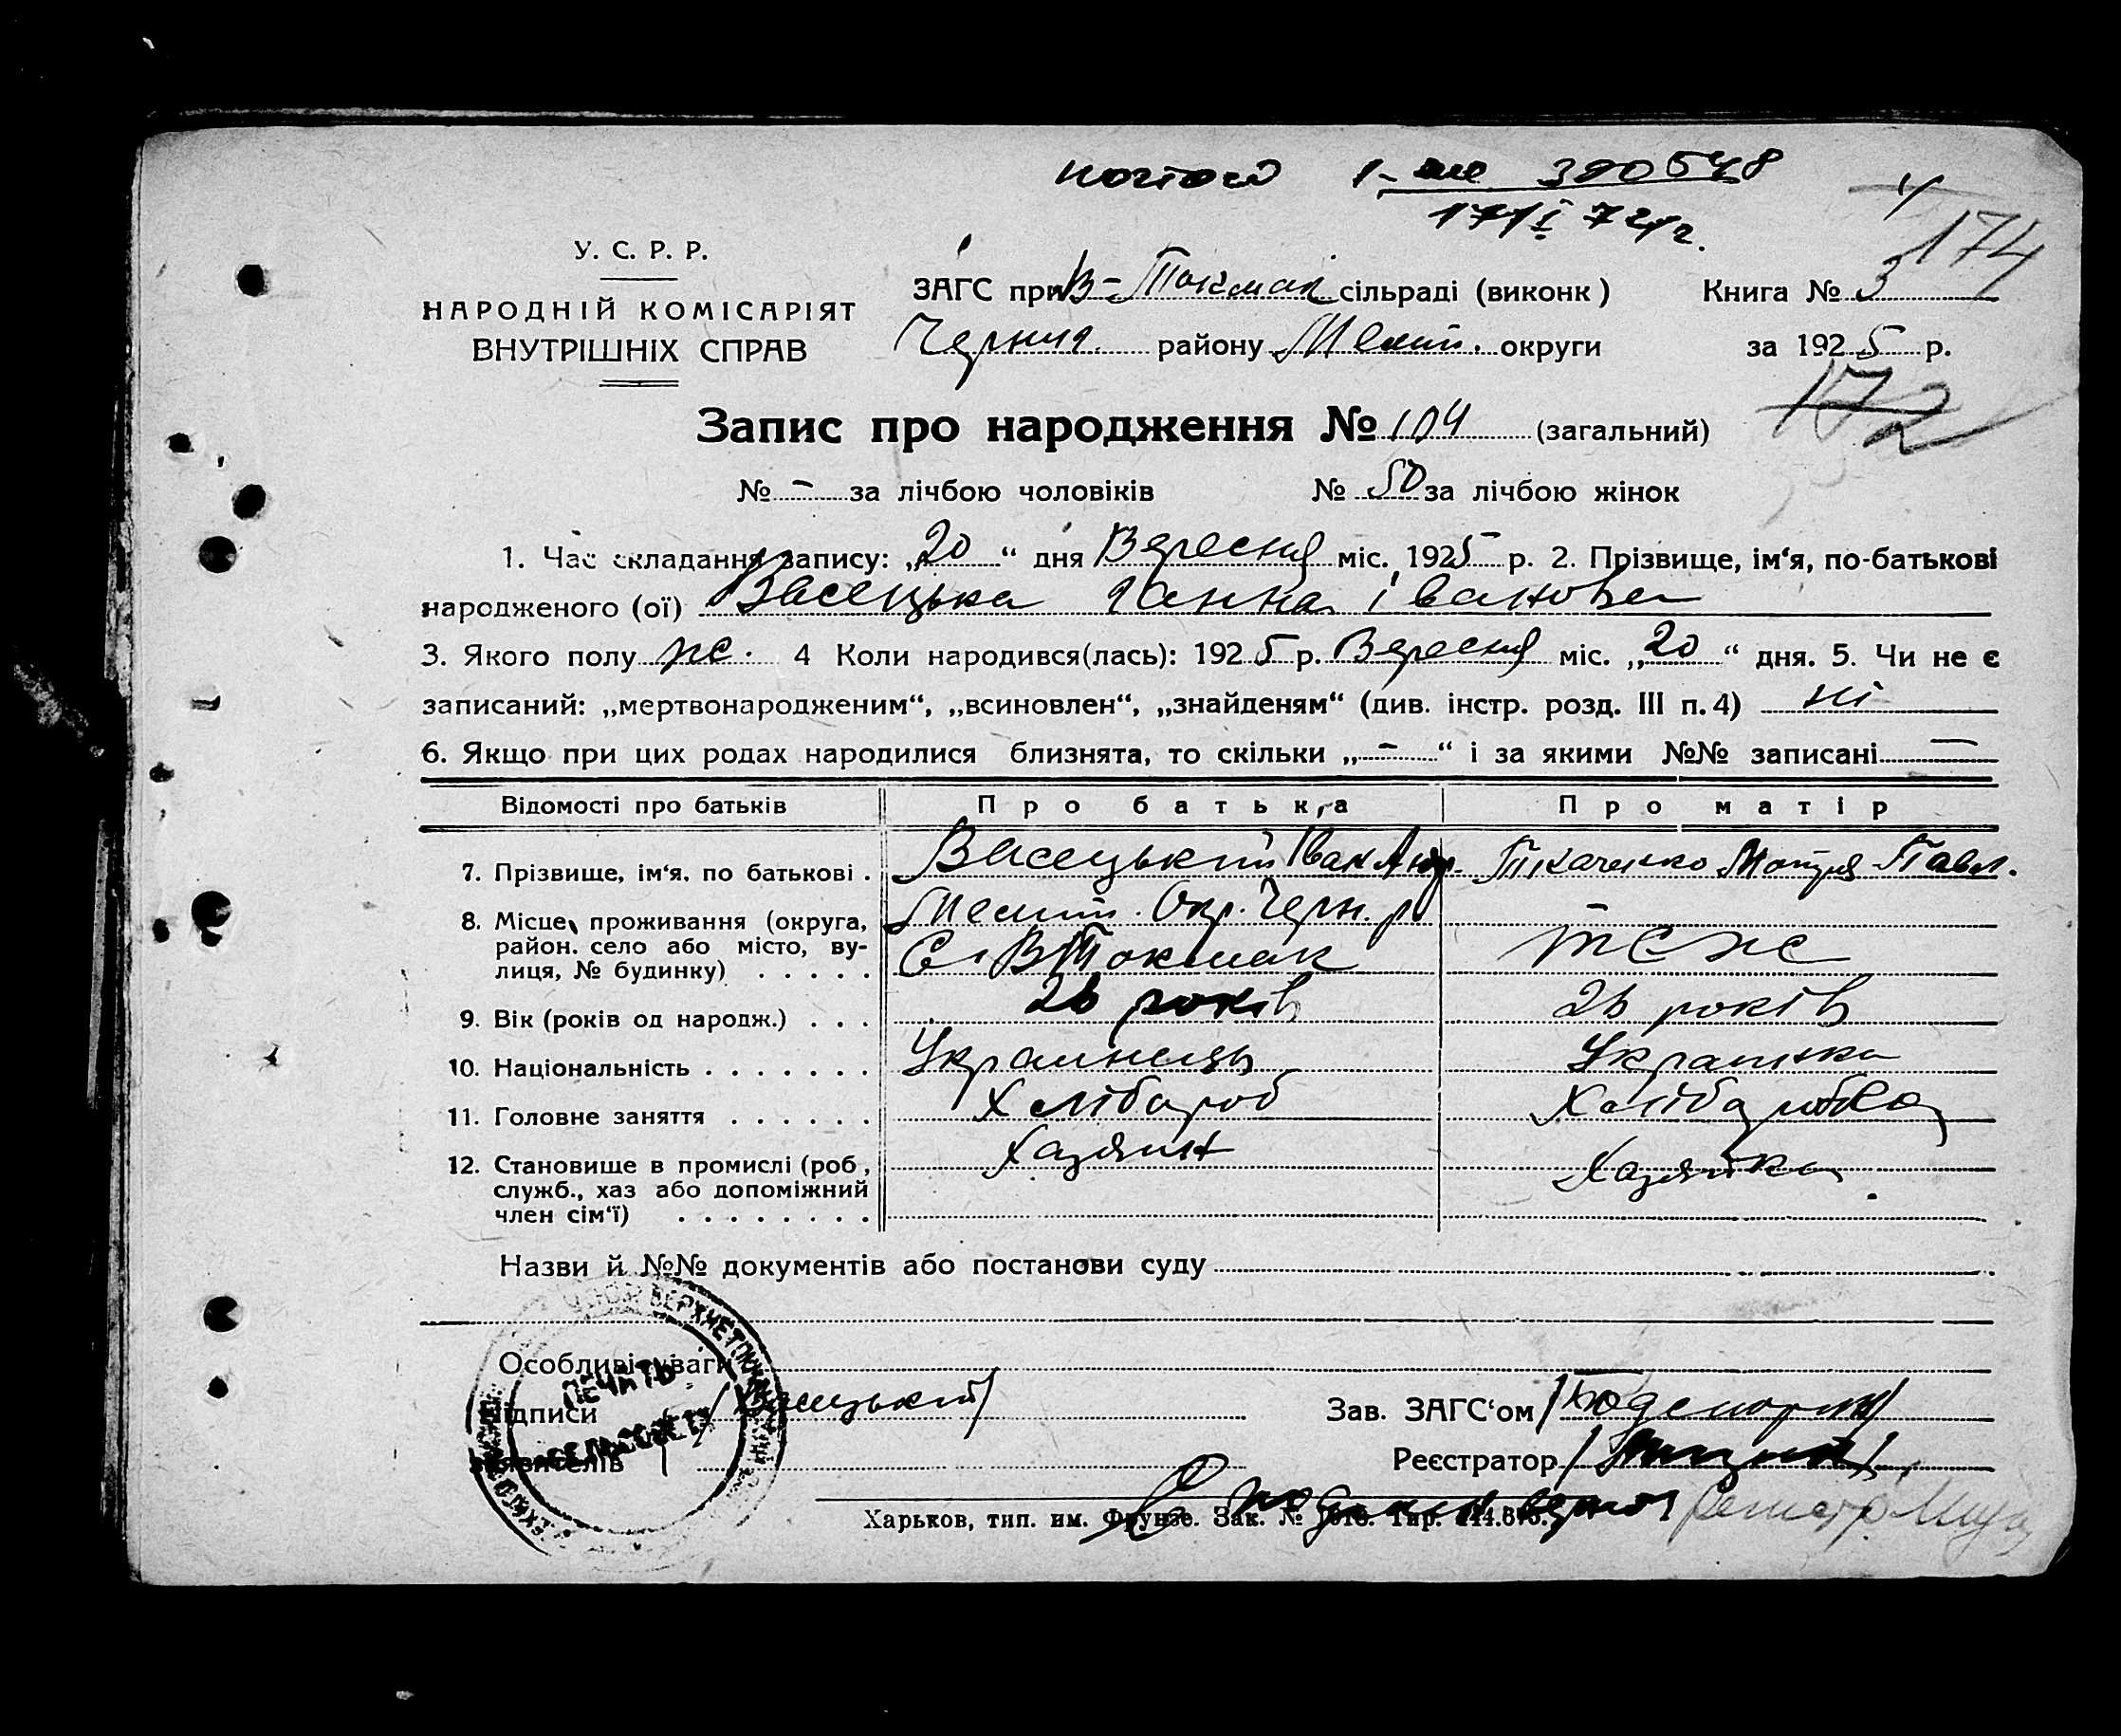 390548
174
У. С. Р. Р.
НАРОДНІЙ КОМІСАРІЯТ
ВНУТРІШНІХ СПРАВ
ЗАГС при В-Токмак сільраді (виконк) Книга № 3
району Меліт. округи за 1925 р.
172
Запис про народження № 104 (загальний)
№ - за лічбою чоловіків № 50 за лічбою жінок
1. Час складання запису: „20“ дня Вересня міс. 1925 р. 2. Прізвище, ім‘я, по-батькові
народженого (ої) Васецька Ганна Іванова
3. Якого полу ж. 4 Коли народився(лась): 1925 р. Вересня міс. „20“ дня. 5. Чи не є
записаний: „мертвонародженим“, „всиновлен“, „знайденям“ (див. інстр. розд. III п. 4) ні
6. Якщо при цих родах народилися близнята, то скільки „-“ і за якими №№ записані —
Відомості про батьків Про батька Про матір
7. Прізвище, ім‘я, по батькові . Васецький Іван Андр. Ткаченко Мотря Павл.
8. Місце проживання (округа, Меліт. Окр. Черн. р
район. село або місто, ву-
лиця, № будинку) . . . . . С. В Токмак тоже
9. Вік (років од народж.) . . . років років
10. Національність . . . . . . . Українець Українка
11. Головне заняття . . . . . . Хлібороб Хліборобка
12. Становище в промислі (роб, Хазяїн Хазяйка
служб., хаз або допоміжний
член сім‘ї) . . . . . . . .
Назви й №№ документів або постанови суду
Особливі уваги
Підписи Васецький Зав. ЗАГС‘ом
заявителів Реєстратор
ПЕЧАТЬ
СЕЛЬСОВЕТА
Харьков, тип. им. Фрунзе. Зак. № Тир.